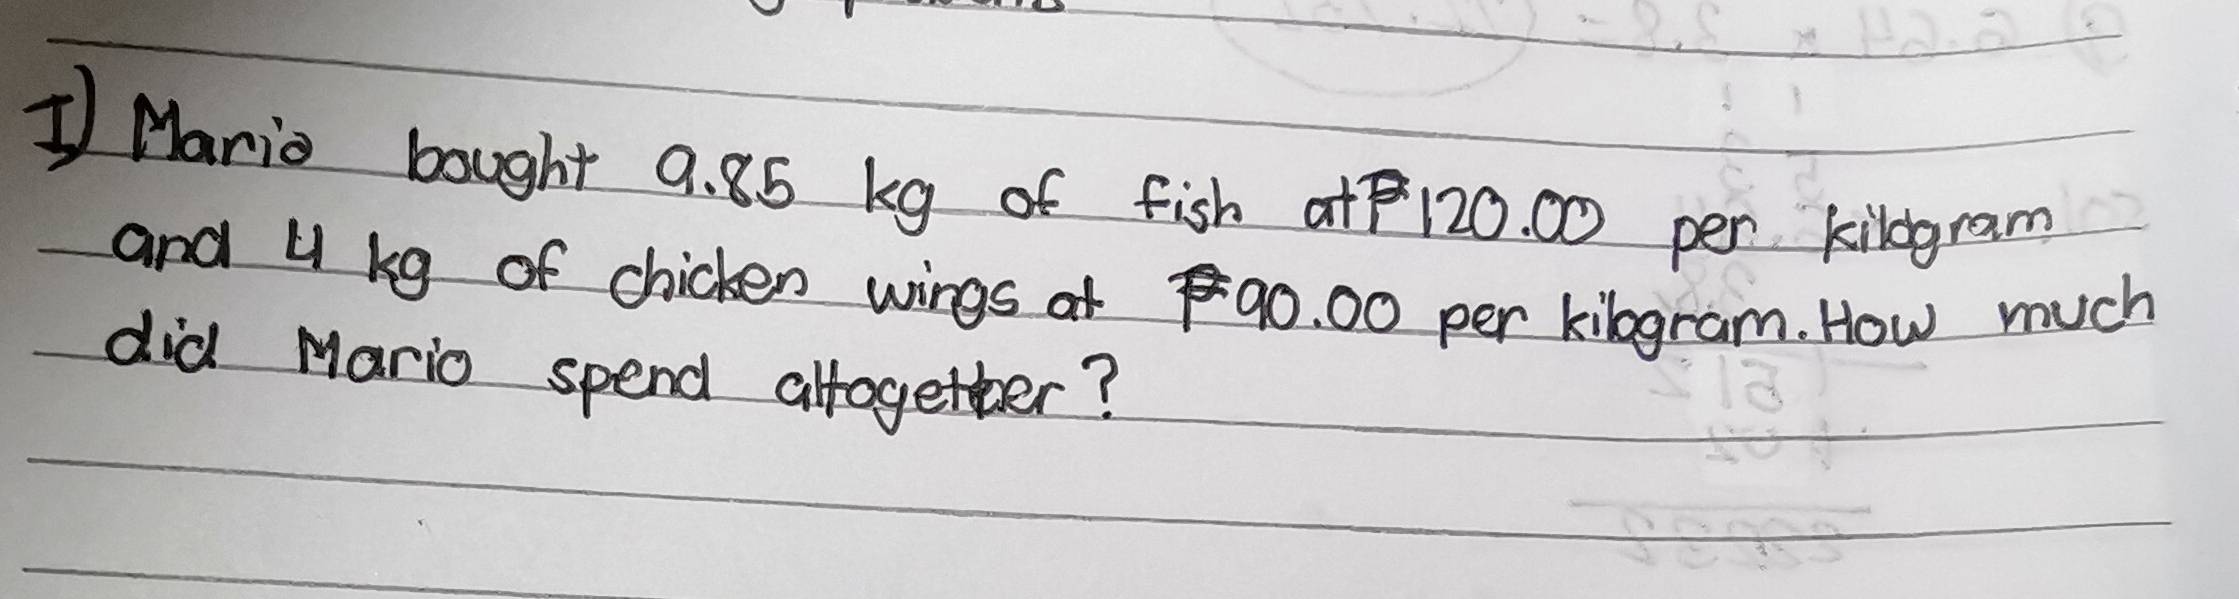 I) Mario bought 9.85 kg of fish at ₱120.00 per kilogram
and 4 kg of chicken wings at ₱90.00 per kilogram. How much
did Mario spend altogether?